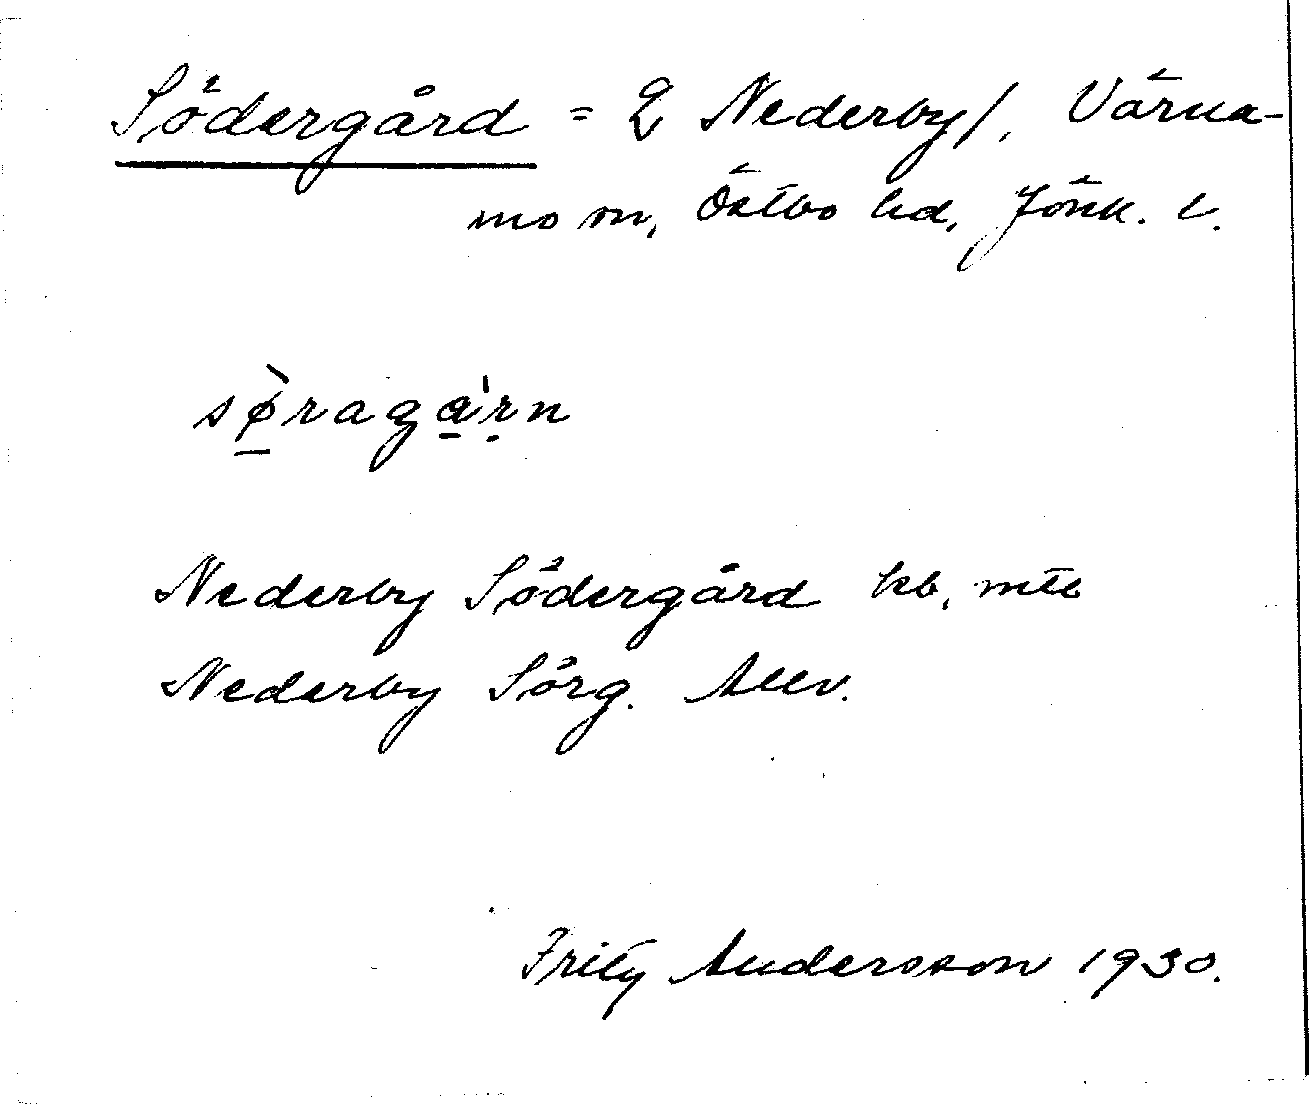 Södergård = 2 Nederby/, Värna-
mo sn, Östbo hd, Jönk. l.
sø̀raga'rn
Nederby Södergård kb, mtl
Nederby Sörg.
Fritz Andersson 1930.